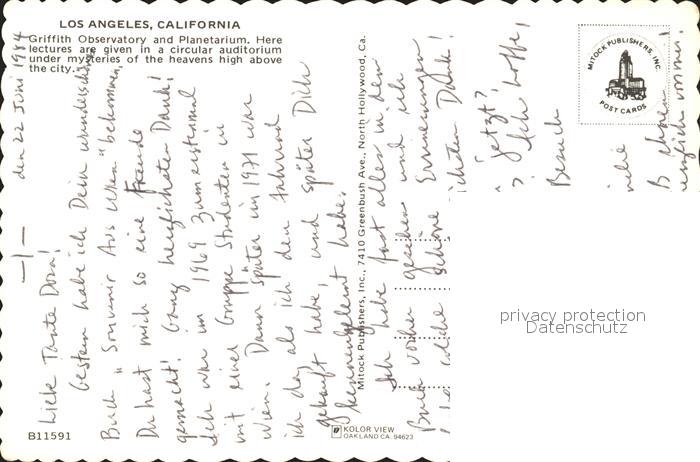 LOS ANGELES, CALIFORNIA
Griffith Observatory and Planetarium. Here
lectures are given in a circular auditorium
under mysteries of the heavens high above
the city.
den 22 Juni 1984
-1-
Liebe Tante Dora!
Gestern habe ich Dein wunderschönes
Buch "Souvenir Aus Wien" bekommen.
Du hast mich so eine Freude
gemacht! Ganz herzlichsten Dank!
Ich war im 1969 zum erstenmal
mit einer Gruppe Studenten in
Wien. Dann später im 1971 war
ich da, als ich den Fahrrad
gekauft habe, und später Dich
kennengelernt habe.
Ich habe fast alles in dem
Buch vorher gesehen und ich
schöne Erinnerungen
ichsten Dank!
jetzt?
Ich hoffe,
Besuch
B11591
Mitock Publishers, Inc., 7410 Greenbush Ave., North Hollywood, Ca.
KOLOR VIEW
OAKLAND CA. 94623
MITOCK PUBLISHERS, INC.
POST CARDS
privacy protection
Datenschutz